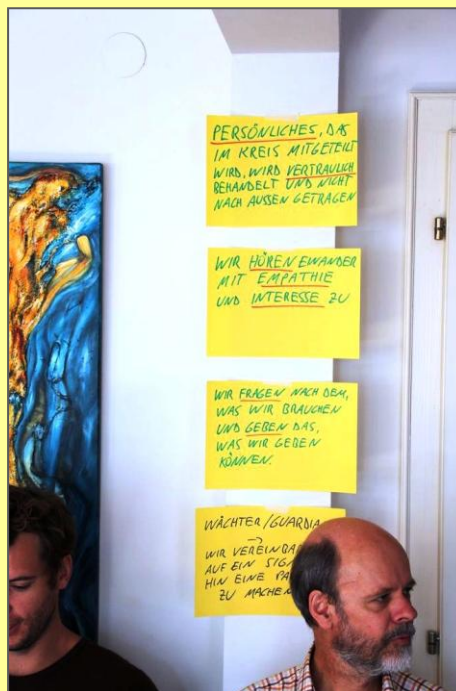 PERSÖNLICHES, DAS
IM KREIS MITGETEILT
WIRD, WIRD VERTRAULICH
BEHANDELT UND NICHT
NACH AUSSEN GETRAGEN
WIR HÖREN EINANDER
MIT EMPATHIE
UND INTERESSE ZU
WIR FRAGEN NACH DEM,
WAS WIR BRAUCHEN
UND GEBEN DAS,
WAS WIR GEBEN
KÖNNEN.
WÄCHTER/GUARDIA
→
WIR
AUF EIN
HIN EINE
ZU MACHEN